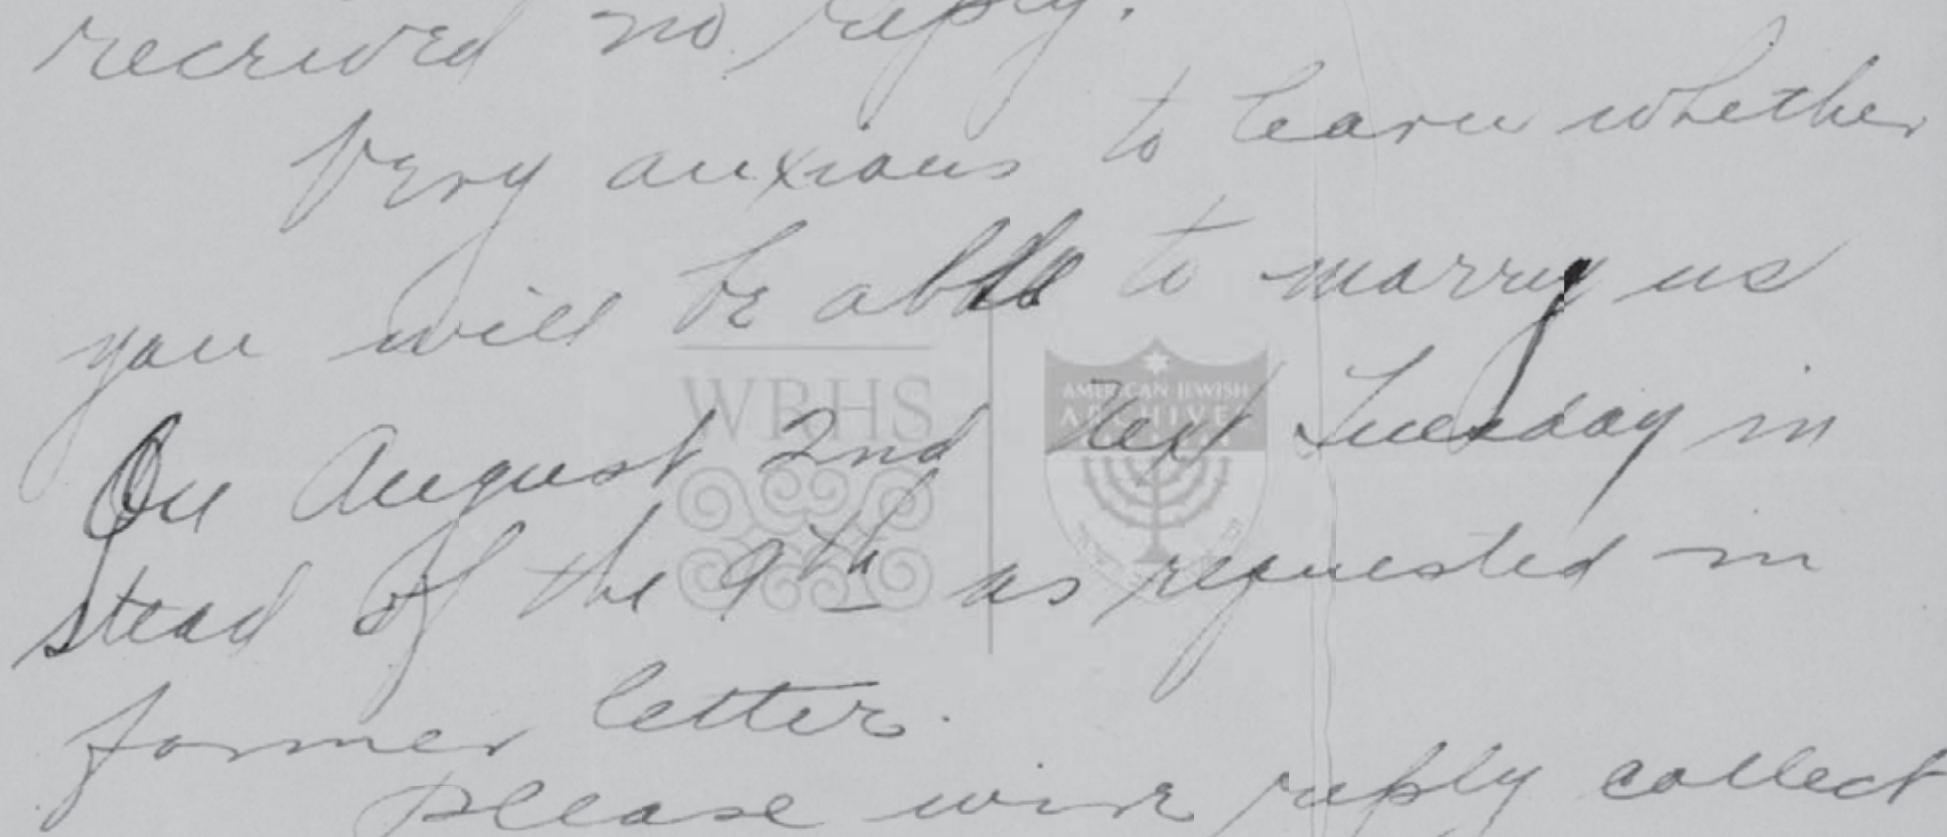 received no reply.
Very anxious to learn whether
you will be able to marry us
On August 2nd next Tuesday in
stead of the 9th as requested in
former letter.
Please wire reply collect
WRHS
AMERICAN JEWISH
ARCHIVES